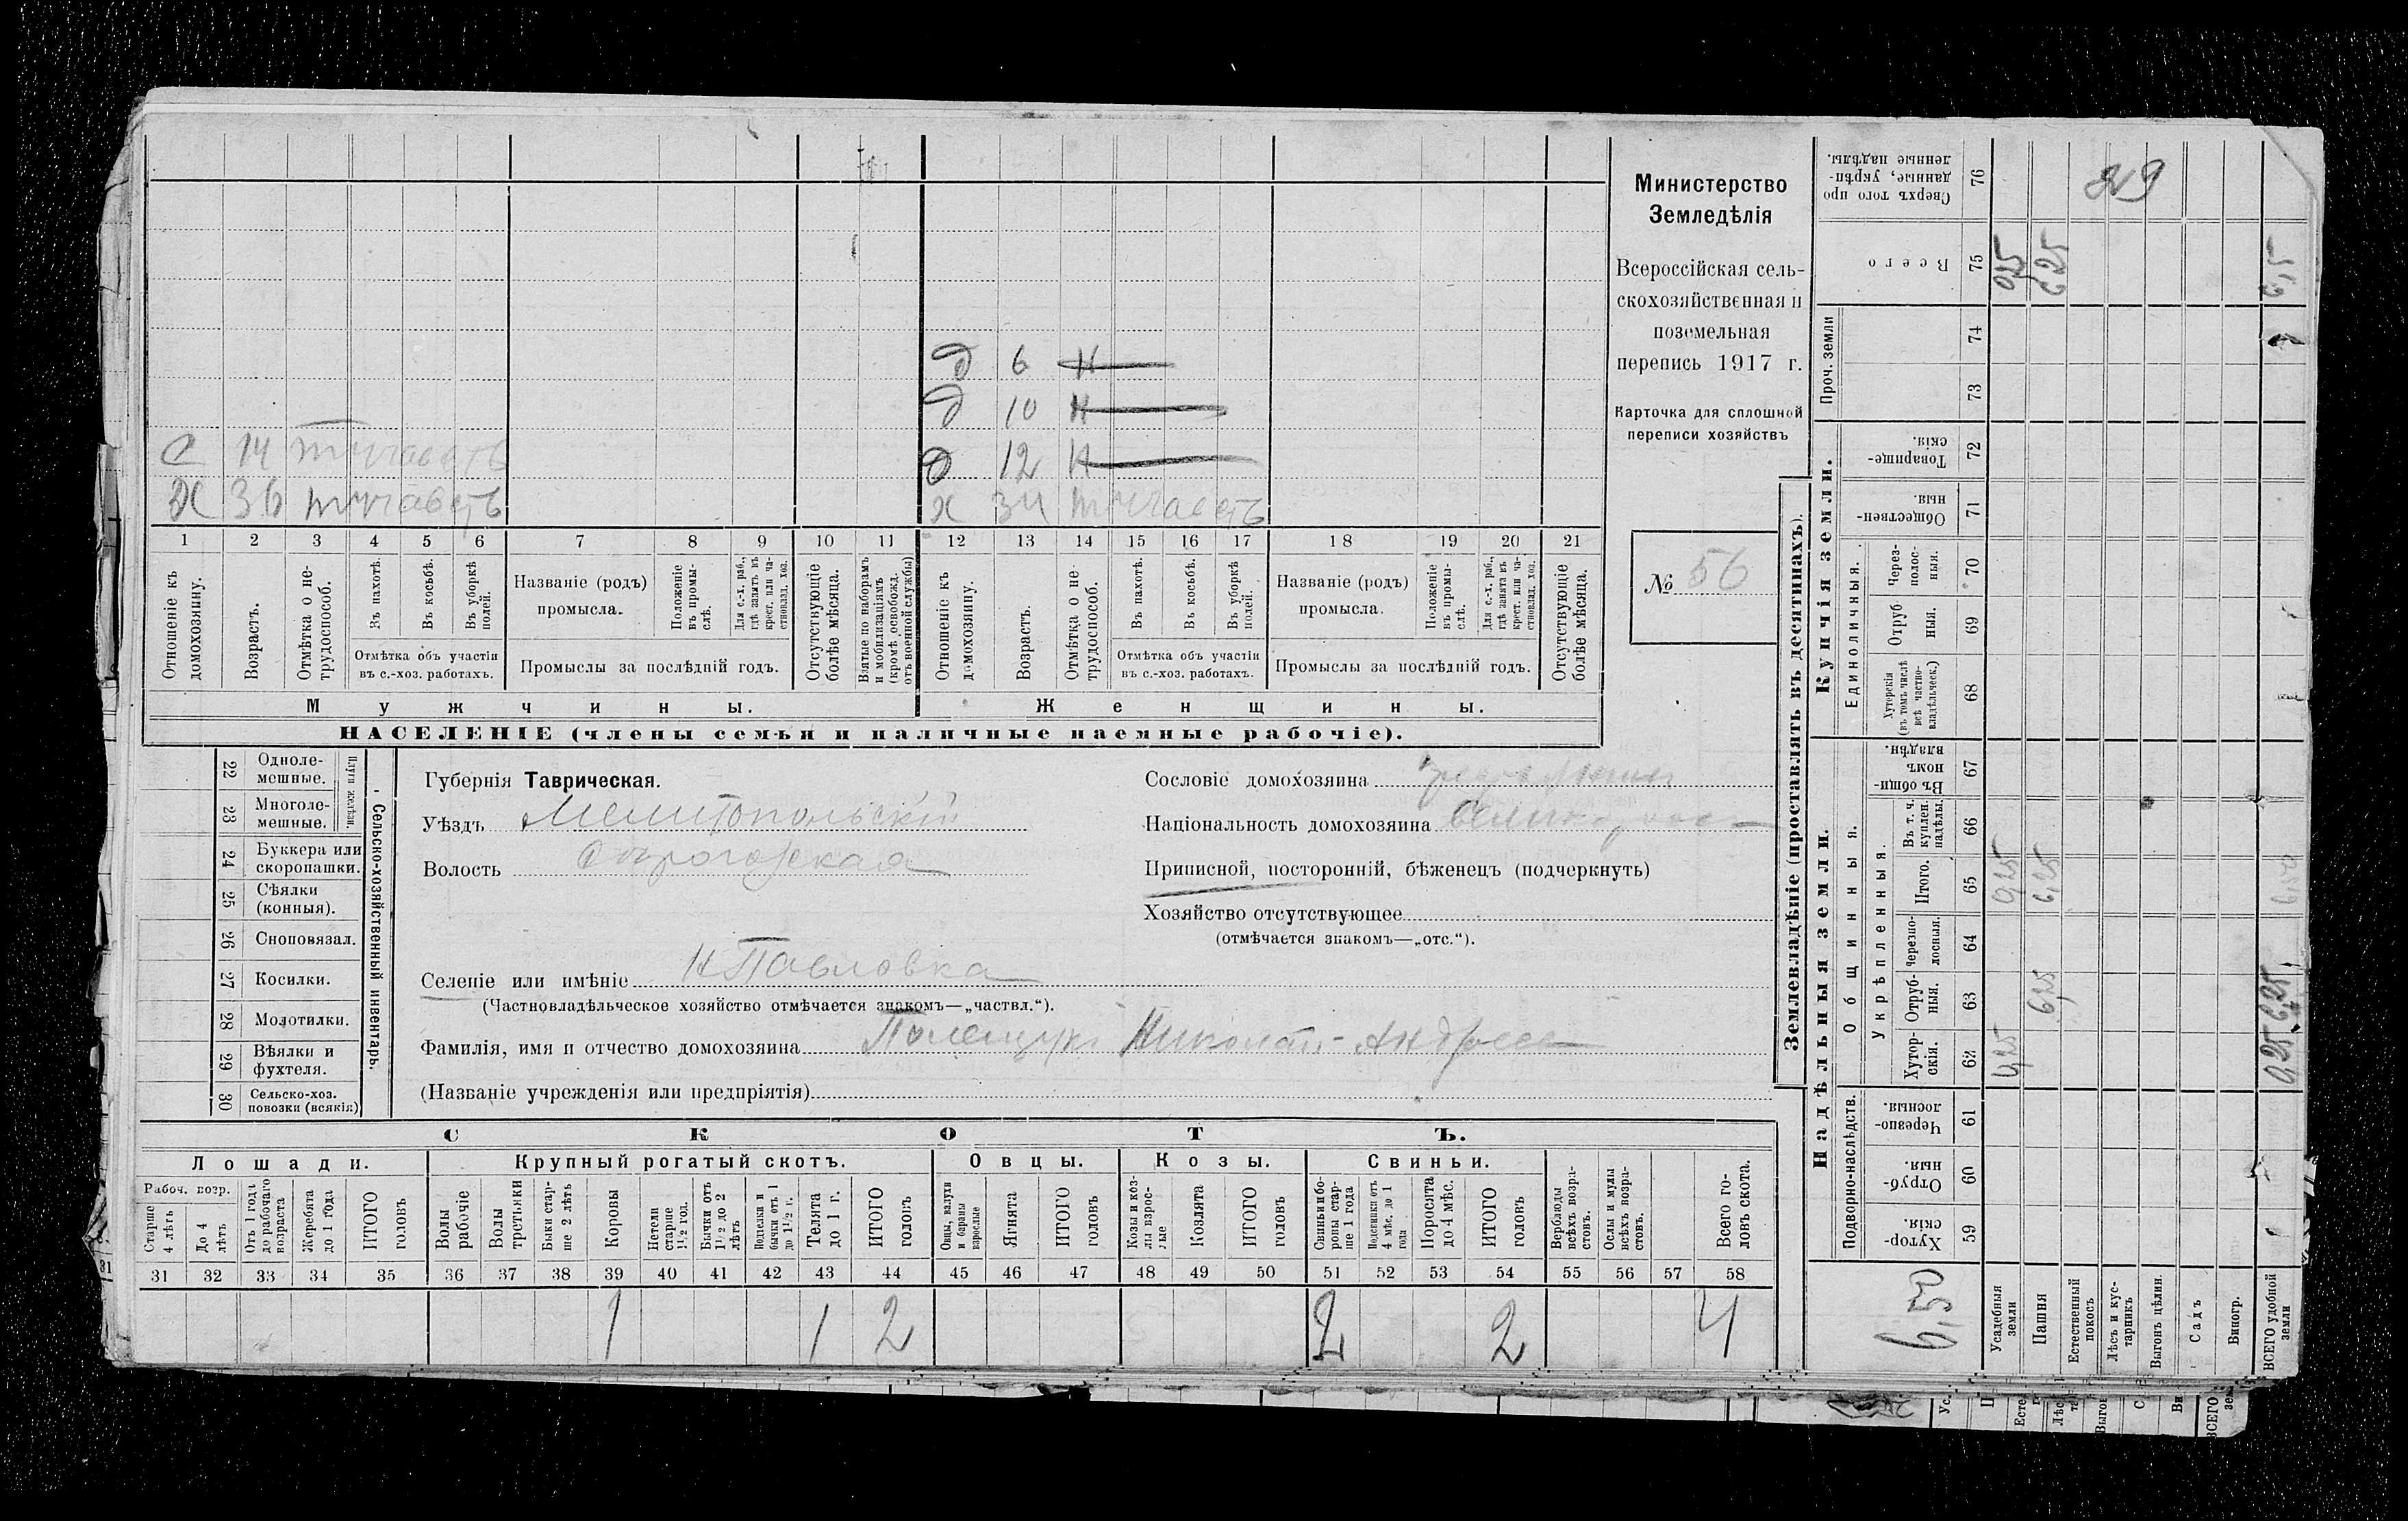 Министерство
Земледѣлія
Всероссійская сель-
скохозяйственная и
поземельная
перепись 1917 г.
Карточка для сплошной
переписи хозяйствъ
№ 56
д 6 н
д 10 н
д 12 н
с 14
х 36
х 34
1 2 3 4 5 6 7 8 9 10 11 12 13 14 15 16 17 18 19 20 21
Отношеніе къ домохозяину.
Возрастъ.
Отмѣтка о не-трудоспособ.
Въ пахотѣ.
Въ косьбѣ.
Въ уборкѣ полей.
Отмѣтка объ участіи въ с.-хоз. работахъ.
Названіе (родъ) промысла.
Положеніе въ промы-слѣ.
Для с.-х. раб., гдѣ занятъ въ крест. или ча-стновлад. хоз.
Промыслы за послѣдній годъ.
Отсутствующіе болѣе мѣсяца.
Взятые по наборамъ и мобилизаціямъ (кромѣ освобожд. отъ военной службы)
Отношеніе къ домохозяину.
Возрастъ.
Отмѣтка о не трудоспособ.
Въ пахотѣ.
Въ косьбѣ.
Въ уборкѣ полей.
Отмѣтка объ участіи въ с.-хоз. работахъ.
Названіе (родъ) промысла.
Положеніе въ промы-слѣ.
Для с.-х. раб., гдѣ занята въ крест. или ча-стновлад. хоз.
Промыслы за послѣдній годъ.
Отсутствующіе болѣе мѣсяца.
Мужчины.
Женщины.
НАСЕЛЕНІЕ (члены семьи и наличные наемные рабочіе).
22 Одноле-мешные.
23 Многоле-мешные.
Плуги желѣзн.
24 Буккера или скоропашки.
25 Сѣялки (конныя).
26 Сноповязал.
27 Косилки.
28 Молотилки.
29 Вѣялки и фухтеля.
30 Сельско-хоз. повозки (всякія)
Сельско-хозяйственный инвентарь.
Губернія Таврическая.
Уѣздъ Мелитопольскій
Волость
Селеніе или имѣніе Н Павловка
(Частновладѣльческое хозяйство отмѣчается знакомъ—„частвл.“).
Фамилія, имя и отчество домохозяина Николай
(Названіе учрежденія или предпріятія)
Сословіе домохозяина
Національность домохозяина
Приписной, посторонній, бѣженецъ (подчеркнуть)
Хозяйство отсутствующее
(отмѣчается знакомъ—„отс.“).
СКОТЪ.
Лошади.
Крупный рогатый скотъ.
Овцы.
Козы.
Свиньи.
Рабоч. возр.
Старше 4 лѣтъ
До 4 лѣтъ
Отъ 1 года до рабочаго возраста
Жеребята до 1 года
ИТОГО головъ
Волы рабочіе
Волы третьяки
Быки стар-ше 2 лѣтъ
Коровы
Нетели старше 1½ год.
Бычки отъ 1½ до 2 лѣтъ
Подтелки и бычки отъ 1 до 1½ г.
Телята до 1 г.
ИТОГО головъ
Овцы, валухи и бараны взрослые
Ягнята
ИТОГО головъ
Козы и коз-лы взрос-лые
Козлята
ИТОГО головъ
Свиньи и бо-ровы стар-ше 1 года
Подсвинки отъ 4 мѣс. до 1 года
Поросята до 4 мѣс.
ИТОГО головъ
Верблюды всѣхъ возра-стовъ.
Ослы и мулы всѣхъ возра-стовъ.
Всего го-ловъ скота.
31 32 33 34 35 36 37 38 39 40 41 42 43 44 45 46 47 48 49 50 51 52 53 54 55 56 57 58
1 1 2 2 2 4
Землевладѣніе (проставлять въ десятинахъ).
Надѣльныя земли.
Купчія земли.
Проч. земли
Подворно-наслѣдств.
Общинныя.
Укрѣпленныя.
Единоличныя.
Хутор-скія. 59
Отруб-ныя. 60
Черезпо-лосныя. 61
Хутор-скія. 62
Отруб-ныя. 63
Черезпо-лосныя. 64
Итого. 65
Въ т. ч. куплен. надѣлы. 66
Въ общин-номъ владѣн. 67
Хуторскія (въ томъ числѣ всѣ частно-владѣльческ.) 68
Отруб ныя. 69
Через-полос-ныя. 70
Обществен-ныя. 71
Товарище-скія. 72
73
74
Всего 75
Сверхъ того про данные, укрѣп-ленные надѣлы. 76
6,50
Усадебныя земли
0,25 0,25
Пашня 6,25 6,25 6,25
Естественный покосъ
Лѣсъ и кус-тарникъ
Выгонъ цѣлин.
Садъ
Виногр.
ВСЕГО удобной земли 0,25 6,25 6,50 6,5